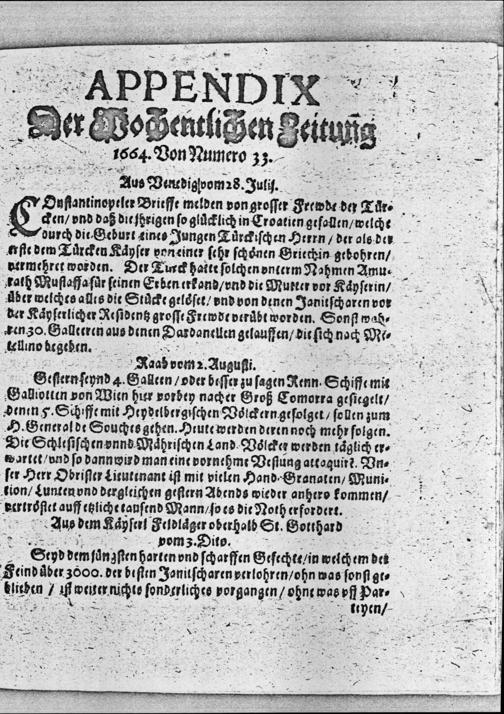 APPENDIX
Der Wochentlichen Zeitung
1664. Von Numero 33.
Aus Venedig/vom 28. Julij.
COnstantinopeler Brieffe melden von grosser Frewde der Tür-
cken/ vnd daß die jhrigen so glücklich in Croatien gefallen/welche
durch die Geburt eines Jungen Türckischen Herrn/ der als der
erste dem Türcken Käyser von einer sehr schönen Griechin gebohren/
vermehret worden. Der Türck hatte solchen vnterm Nahmen Amu-
rath Mustaffa für seinen Erben erkand/vnd die Mutter vor Käyserin/
über welches alles die Stücke gelöset/vnd von denen Janitscharen vor
der Käyserlicher Residentz grosse Frewde verübt worden. Sonst wah-
ren 30. Galleeren aus denen Dardanellen gelauffen/die sich nach Me-
tellino begeben.
Raab vom 2. Augusti.
Gestern seynd 4. Galleen/oder besser zu sagen Renn-Schiffe mit
Galliotten von Wien hier vorbey nacher Groß Comorra gesiegelt/
denen 5. Schiffe mit Heydelbergischen Völckern gefolget/ sollen zum
H. General de Souches gehen. Heute werden deren noch mehr folgen.
Die Schlesischen vnnd Mährischen Land-Völcker werden täglich er-
wartet/vnd so dann wird man eine vornehme Vestung attaquirn. Vn-
ser Herr Obrister Lieutenant ist mit vielen Hand-Granaten/ Muni-
tion/ Lunten vnd dergleichen gestern Abends wieder anhero kommen/
vertröstet auff etzliche tausend Mann/so es die Noth erfordert.
Aus dem Käyserl. Feldläger oberhalb St. Gotthard
vom 3. Dito.
Seyd dem jüngsten harten vnd scharffen Gefechte/in welchem der
Feind über 3000. der besten Janitscharen verlohren/ohn was sonst ge-
blieben / ist weiter nichts sonderliches vorgangen/ ohne was vff Par-
teyen/